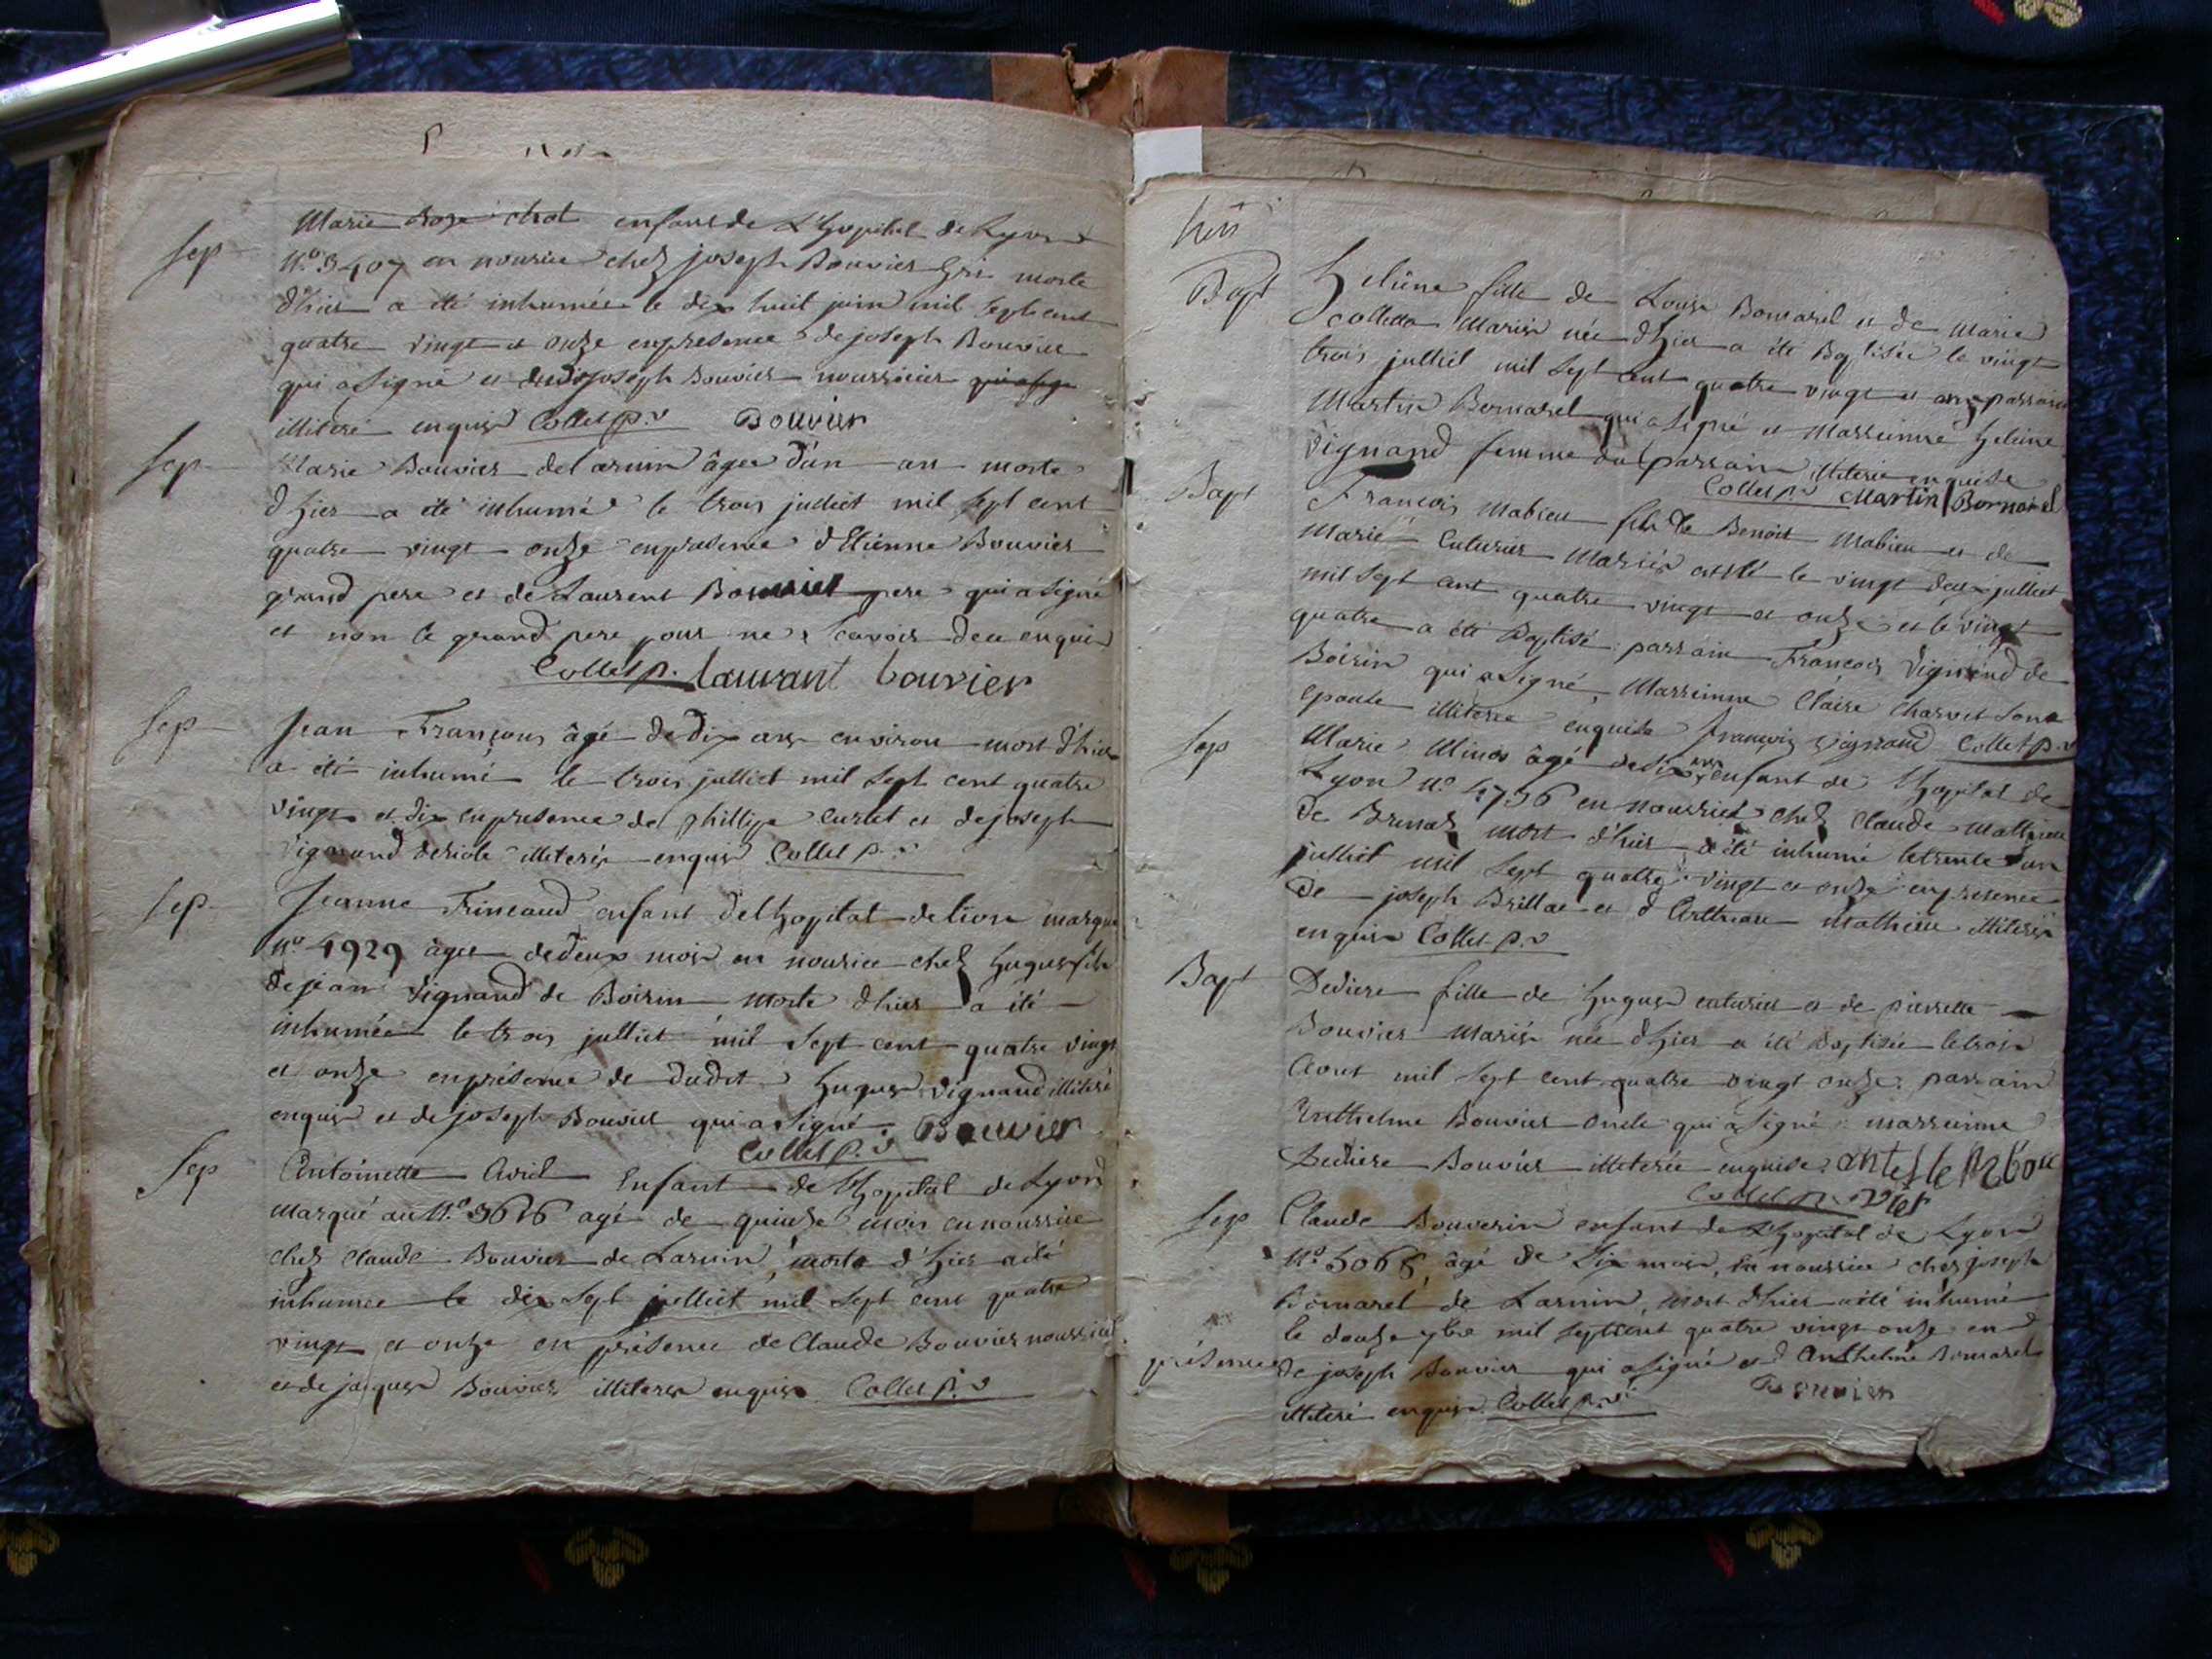 Sep
Marie Roze chol enfant de L'hopital de Lyon
N.o 3407 en nourice chez joseph Bouvier morte
d'hier a été inhumée le dix huit juin mil sept cent
quatre vingt et onze en presence de joseph Bouvier
qui a signé et dudit joseph Bouvier nourricier
illiteré enquis Collet p.v Bouvier
Sep
Marie Bouvier de Larnin âgée d'un an morte
d'hier a été inhumé le trois julliet mil sept cent
quatre vingt onze en presence d'Etienne Bouvier
grand pere et de Laurent Bouvier pere qui a signé
et non le grand pere pour ne scavoir de ce enquis
Collet p. laurant bouvier
Sep
Jean François âgé de dix ans environ mort d'hier
a été inhumé le trois julliet mil sept cent quatre
vingt et dix en presence de phillipe Curlet et de joseph
Vignand illiterés enquis Collet p. v
Sep
Jeanne enfant de l'hopital de lion marqué
N.o 4929 âgée de deux mois en nourice chez hugues fils
de jean Vignand de Boirin morte d'hier a été
inhumée le trois julliet mil sept cent quatre vingt
et onze en présence de dudit hugues Vignand illiteré
enquis et de joseph Bouvier qui a signé. Bouvier
Collet p. v
Sep
Antoinette Avril Enfant de l'hopital de Lyon
marqué au N.o 3626 agé de quinze mois en nourrice
chez Claude Bouvier de Larnin, morte d'hier a été
inhumée le dix sept julliet mil sept cent quatre
vingt et onze en présence de Claude Bouvier nourricier
et de jacques Bouvier illiterés enquis Collet p. v
Bapt
helêine fille de Louis Bornarel et de Marie
Collette Mariés née d'hier a été Baptisée le vingt
trois julliet mil sept cent quatre vingt et onze parrain
Martin Bornarel qui a signé et Marreinne helêine
Vignand femme du parrain illiterée enquise
Collet p.v Martin Bornarel
Bapt
François Mabieu fils de Benoit Mabieu et de
Marie Cuturier Mariés le vingt deux julliet
mil sept cent quatre vingt et onze et le vingt
quatre a été Baptisé parrain François Vignand de
Boirin qui a signé, Marreinne Claire Charvet son
epouse illiterée enquise françois vignand Collet p.v
Sep
Marie Minos âgé de six ans enfant de l'hopital de
Lyon N.o 4736 en nourrice chez Claude Mathieu
de Brenas mort d'hier a été inhumé le trente un
julliet mil sept quatre vingt et onze en presence
de joseph Brillat et d'Anthelme Mathieu illiterés
enquis Collet p. v
Bapt
Dediere fille de hugues cuturier et de pierrette
Bouvier Mariés née d'hier a été Baptisée le trois
Aout mil sept cent quatre vingt onze. parrain
Anthelme Bouvier oncle qui a signé marreinne
Dediere Bouvier illiterée enquise
Collet p. v vier
Sep
Claude Bouverin enfant de L'hopital de Lyon
N.o 5068, âgé de six mois, en nourrice chez joseph
Bornarel de Larnin, mort d'hier a été inhumé
le douze 7bre mil sept cent quatre vingt onze en
présence de joseph Bouvier qui a signé et d'Anthelme Bornarel
illiteré enquis. Collet p. v. Bouvier